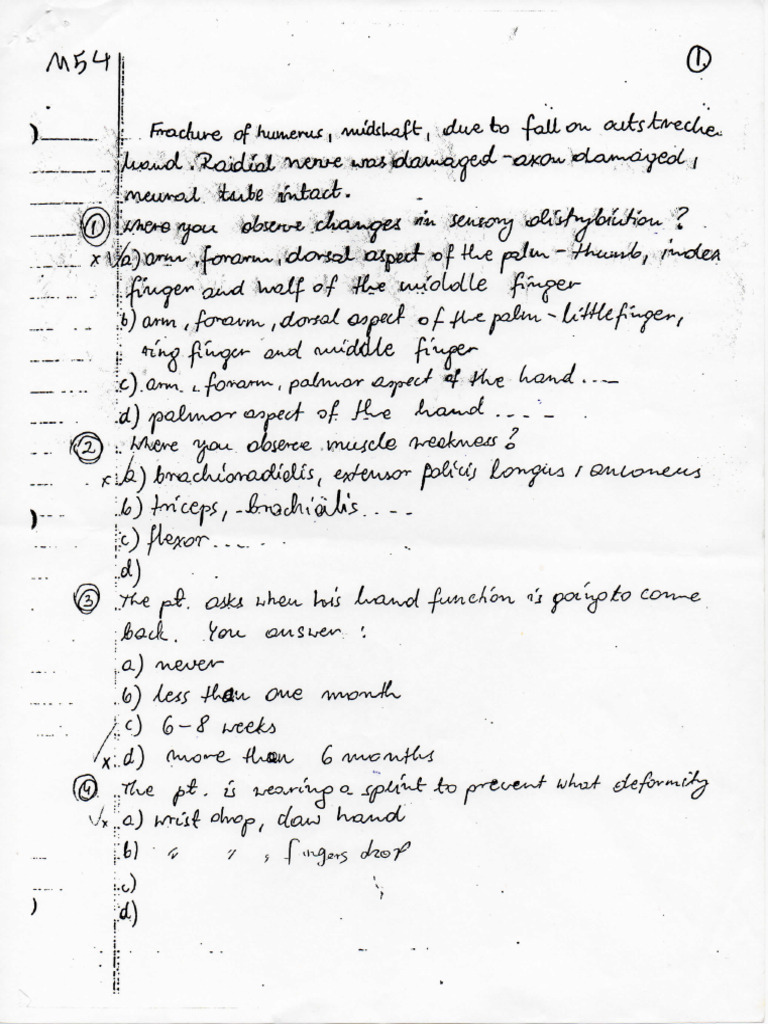 M54
1.
Fracture of humerus, midshaft, due to fall on outstreche
hand. Raidial nerve was damaged - axon damaged,
neural tube intact.
1 Where you observe changes in sensory distrybiution?
x √a) arm, forarm, dorsal aspect of the palm - thumb, index
finger and half of the middle finger
b) arm, forarm, dorsal aspect of the palm - little finger,
ring finger and middle finger
c) arm, forarm, palmar aspect of the hand ....
d) palmar aspect of the hand ....
2 Where you observe muscle weakness?
x a) brachioradialis, extensor policis longus, anconeus
b) triceps, brachialis ....
c) flexor.....
d)
3 The pt. asks when his hand function is going to come
back. You answer:
a) never
b) less than one month
c) 6-8 weeks
√x d) more than 6 months
4 The pt. is wearing a splint to prevent what deformity
√x a) wrist drop, claw hand
b) " " , fingers drop
c)
d)